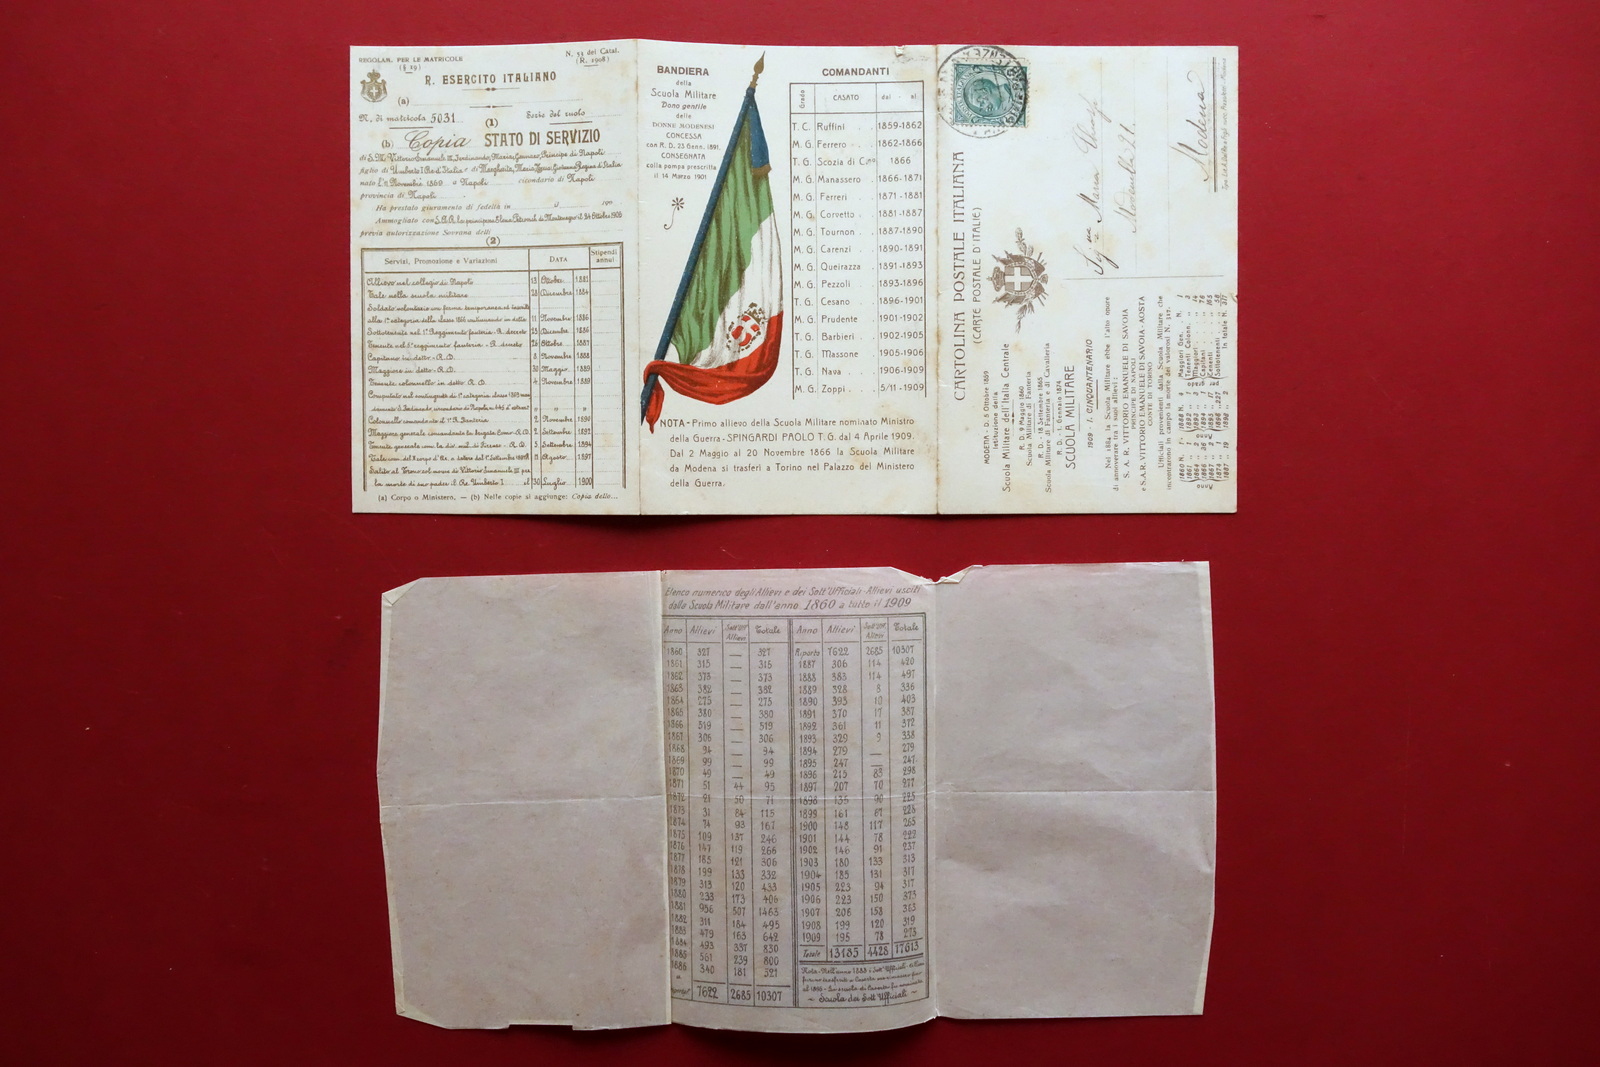 REGOLAM. PER LE MATRICOLE
(§ 19)
N. 53 del Catal.
(R. 1908)
R. ESERCITO ITALIANO
(a)
N. di matricola 5031
(1)
Serie del ruolo
(b) Copia STATO DI SERVIZIO
di S.M. Vittorio Emanuele III, Ferdinando, Maria, Gennaro, Principe di Napoli
figlio di Umberto I Re d'Italia e di Margherita, Maria, Regina d'Italia
nato l' 11 Novembre 1869 a Napoli circondario di Napoli
provincia di Napoli
Ha prestato giuramento di fedeltà in
Ammogliato con S.A.R. la principessa Elena Petrovich di Montenegro il 24 Ottobre 1896
previa autorizzazione Sovrana delli
(2)
Servizi, Promozione e Variazioni DATA Stipendi annui
Allievo nel collegio di Napoli 13 Ottobre 1881
Tale nella scuola militare 28 Dicembre 1884
Soldato volontario
alla 1ª categoria della classe 1866 continuando in detta 11 Novembre 1886
Sottotenente nel 1° Reggimento fanteria - R. decreto 23 Dicembre 1886
Tenente nel 5° reggimento fanteria - R. decreto 26 Ottobre 1887
Capitano in detto - R.D. 8 Novembre 1888
Maggiore in detto - R.D. 30 Maggio 1889
Tenente colonnello in detto R.D. 4 Novembre 1889
Colonnello comandante il 1° R. Fanteria 2 Novembre 1890
Maggiore generale comandante la brigata Como - R.D. 1 Settembre 1892
Tenente generale com. la div. mil. di Firenze - R.D. 3 Settembre 1894
Agosto 1897
Salito al Trono col nome di Vittorio Emanuele III per
la morte di suo padre il Re Umberto I. il 30 Luglio 1900
(a) Corpo o Ministero. — (b) Nelle copie si aggiunge: Copia dello...
BANDIERA
della
Scuola Militare
Dono gentile
delle
DONNE MODENESI
CONCESSA
con R. D. 23 Genn. 1891.
CONSEGNATA
colla pompa prescritta
il 14 Marzo 1901
COMANDANTI
Grado CASATO dal - al
T. C. Ruffini . . 1859-1862
M. G. Ferrero . . 1862-1866
T. G. Scozia di C.no 1866
M. G. Manassero . 1866-1871
M. G. Ferreri . . 1871-1881
M. G. Corvetto . . 1881-1887
M. G. Tournon . . 1887-1890
M. G. Carenzi . . 1890-1891
M. G. Queirazza . . 1891-1893
M. G. Pezzoli . . 1893-1896
T. G. Cesano . . 1896-1901
M. G. Prudente . . 1901-1902
T. G. Barbieri . . 1902-1905
T. G. Massone . . 1905-1906
T. G. Nava . . 1906-1909
M. G. Zoppi . . 5/11-1909
NOTA - Primo allievo della Scuola Militare nominato Ministro
della Guerra - SPINGARDI PAOLO T. G. dal 4 Aprile 1909.
Dal 2 Maggio al 20 Novembre 1866 la Scuola Militare
da Modena si trasferì a Torino nel Palazzo del Ministero
della Guerra.
CARTOLINA POSTALE ITALIANA
(CARTE POSTALE D'ITALIE)
MODENA - D. 5 Ottobre 1859
Istituzione della
Scuola Militare dell'Italia Centrale
R. D. 9 Maggio 1860
Scuola Militare di Fanteria
R. D. - 18 Settembre 1865
Scuola Militare di Fanteria e di Cavalleria
R. D. - 1. Gennaio 1874
SCUOLA MILITARE
1909 - I. CINQUANTENARIO
Nel 1884 la Scuola Militare ebbe l'alto onore
di annoverare tra i suoi allievi:
S. A. R. VITTORIO EMANUELE DI SAVOIA
PRINCIPE DI NAPOLI
e S.A.R. VITTORIO EMANUELE DI SAVOIA-AOSTA
CONTE DI TORINO
Ufficiali provenienti dalla Scuola Militare che
incontrarono in campo la morte dei valorosi N. 317.
In totale N. 317
Sig.na Maria
Modena
Elenco numerico degli Allievi e dei Sott'Ufficiali-Allievi usciti
dalla Scuola Militare dall'anno 1860 a tutto il 1909
Anno Allievi Sott'Uff. Allievi Totale Anno Allievi Sott'Uff. Allievi Totale
1860 327 — 327 Riporto 7622 2685 10307
1861 315 — 315 1887 306 114 420
1862 373 — 373 1888 383 114 497
1863 382 — 382 1889 328 8 336
1864 275 — 275 1890 393 10 403
1865 380 — 380 1891 370 17 387
1866 519 — 519 1892 361 11 372
1867 306 — 306 1893 329 9 338
1868 94 — 94 1894 279 — 279
1869 99 — 99 1895 247 — 247
1870 49 — 49 1896 215 83 298
1871 51 44 95 1897 207 70 277
1872 21 50 71 1898 135 90 225
1873 31 84 115 1899 161 67 228
1874 74 93 167 1900 148 117 265
1875 109 137 246 1901 144 78 222
1876 147 119 266 1902 146 91 237
1877 185 121 306 1903 180 133 313
1878 199 133 332 1904 185 131 317
1879 313 120 433 1905 223 94 317
1880 233 173 406 1906 223 150 373
1881 956 507 1463 1907 206 158 363
1882 311 184 495 1908 199 120 319
1883 479 163 642 1909 195 78 273
1884 493 337 830 Totale 13185 4428 17613
1885 561 239 800
1886 340 181 521
7622 2685 10307
Nota - Nell'anno 1888 i Sott'Ufficiali
~ Scuola dei Sott'Ufficiali ~